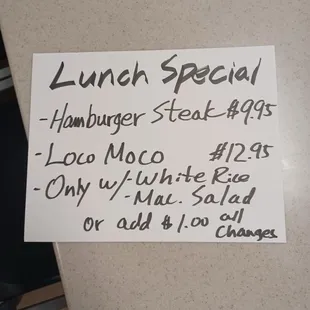 Lunch Special
- Hamburger Steak $9.95
- Loco Moco $12.95
- Only w/ - White Rice
- Mac. Salad
or add $1.00 all
changes